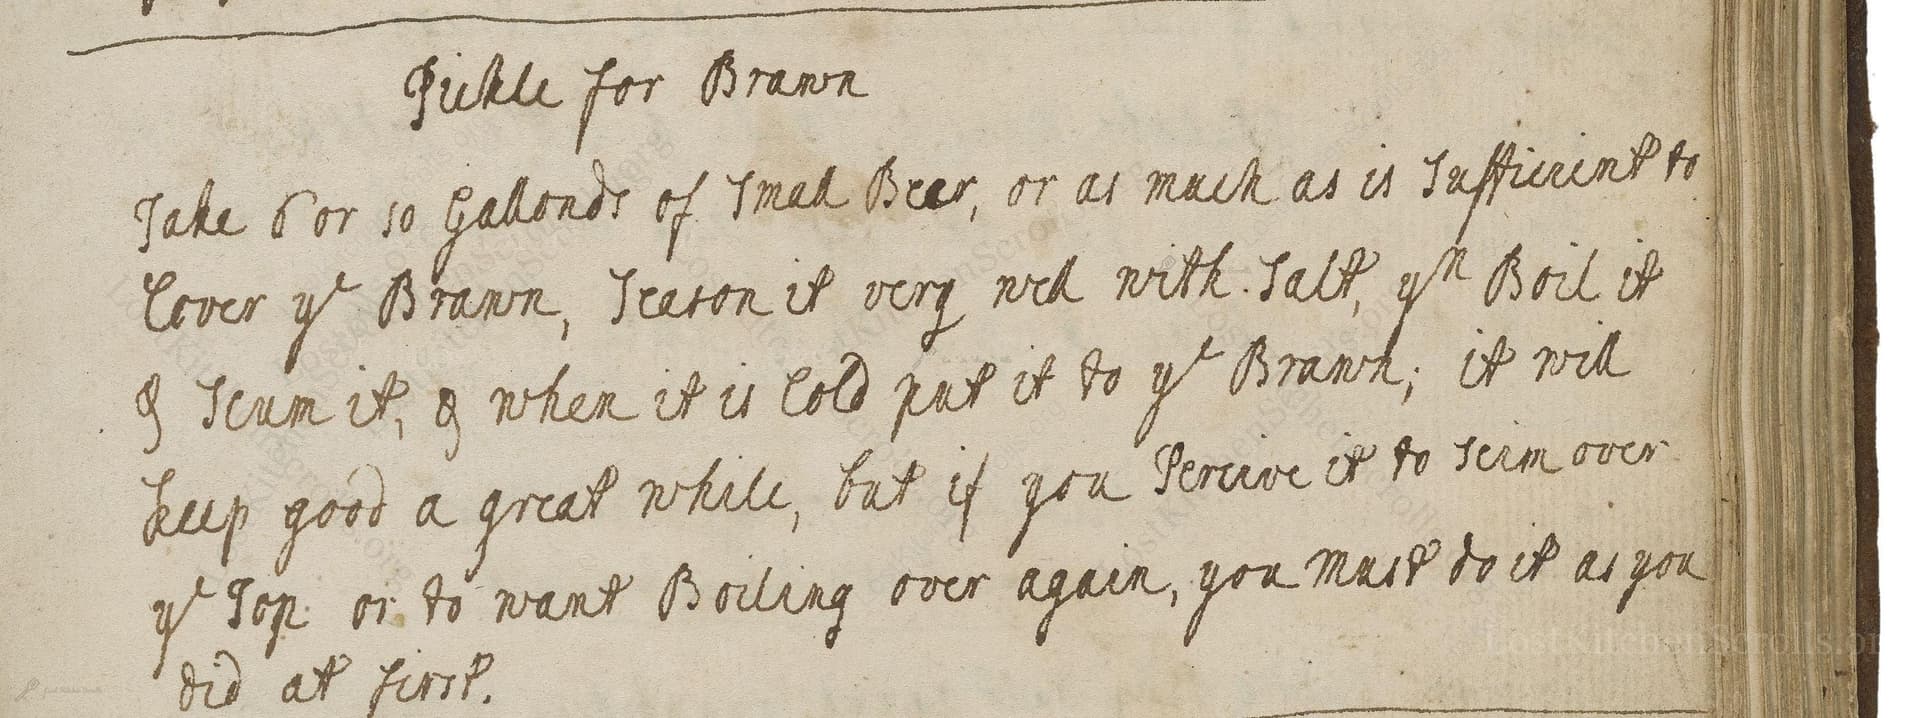 Pickle for Brawn
Take 6 or 10 Gallonds of Small Beer, or as much as is Sufficient to
Cover yᵉ Brawn, Season it very well with Salt, yⁿ Boil it
& Scum it, & when it is Cold put it to yᵉ Brawn; it will
keep good a great while, but if you Perceive it to scim over
yᵉ Top or to want Boiling over again, you must do it as you
did at first.
LostKitchenScrolls.org